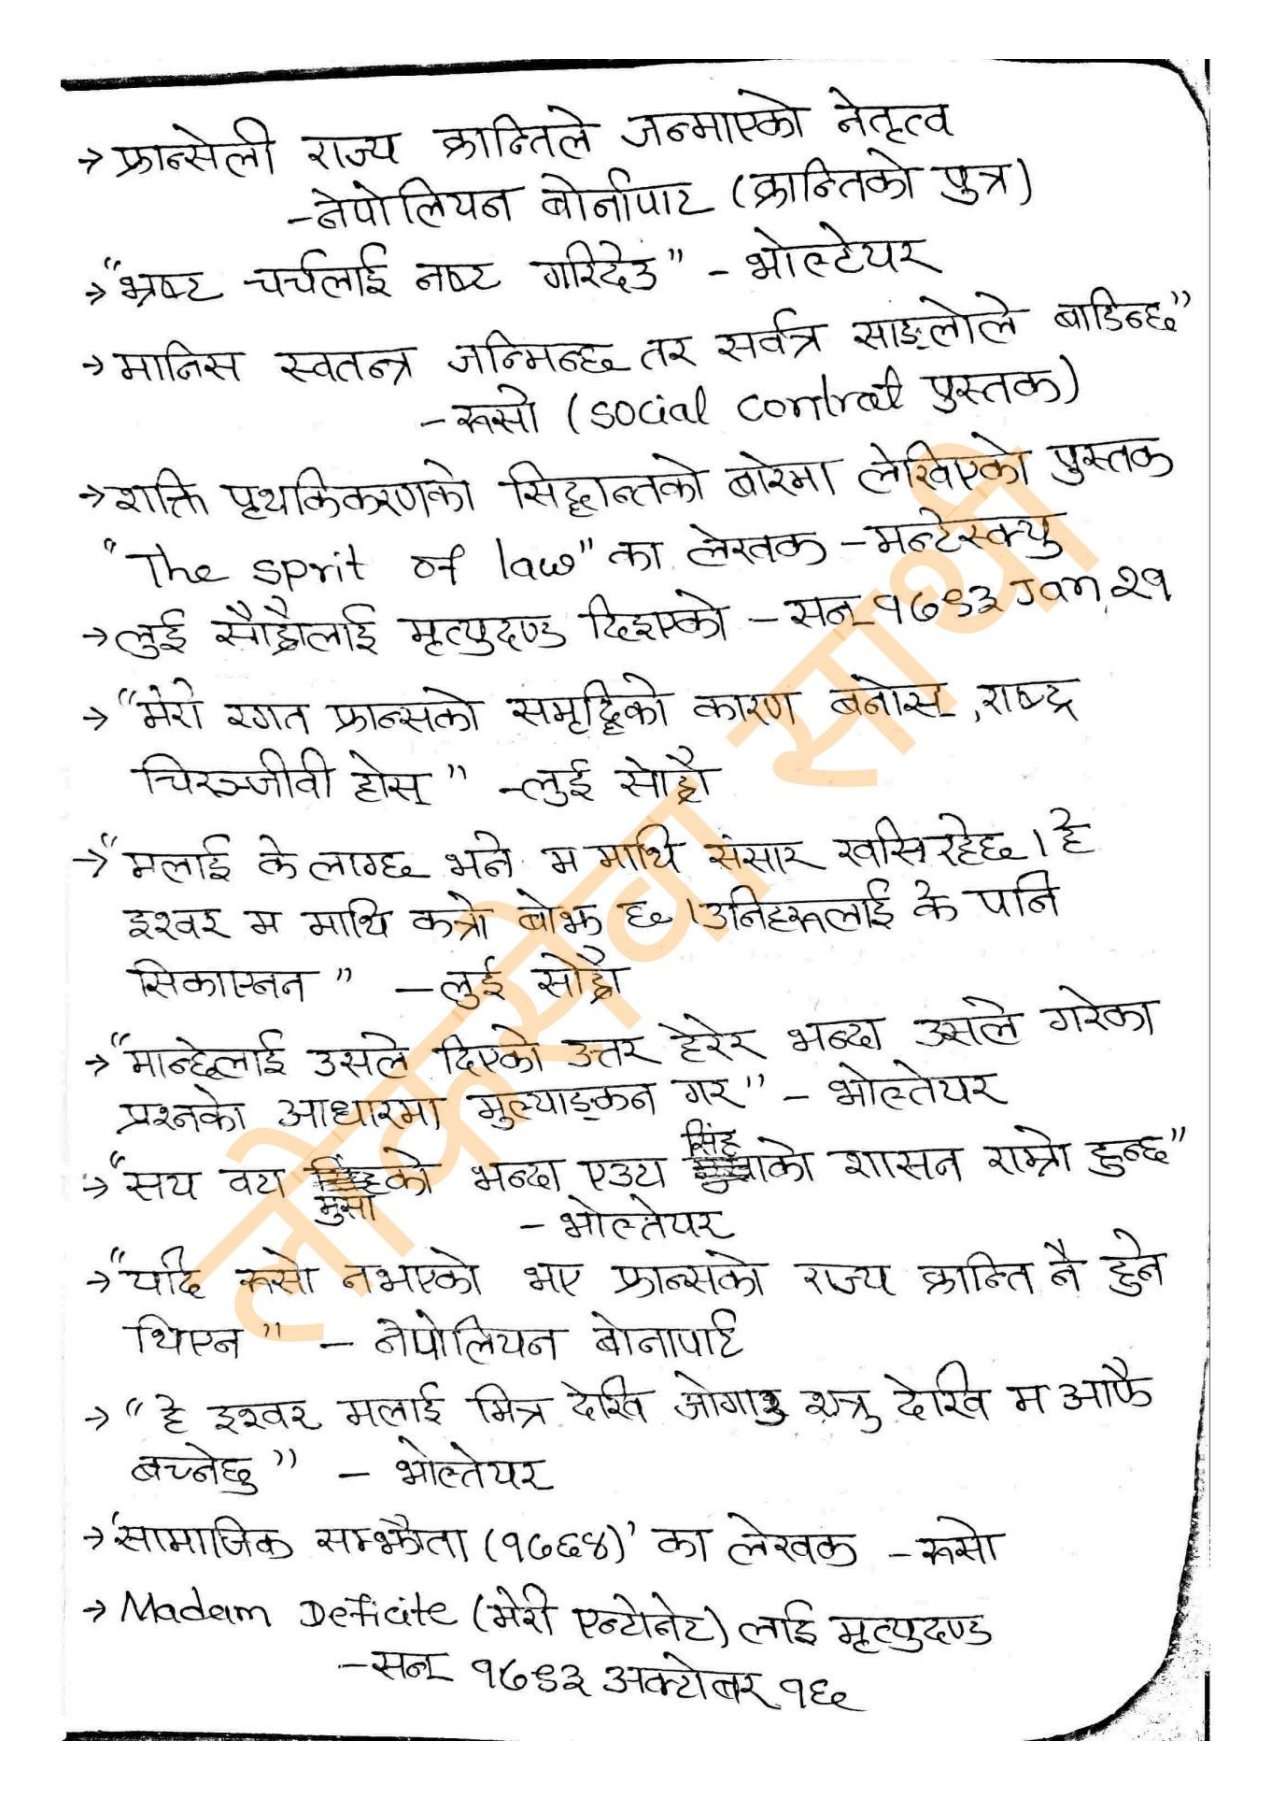 → फ्रान्सेली राज्य क्रान्तिले जन्माएको नेतृत्व
-नेपोलियन बोर्नापाट (क्रान्तिको पुत्र)
→ "भ्रष्ट चर्चलाई नष्ट गरिदेउ" - भोल्टेयर
→ मानिस स्वतन्त्र जन्मिन्छ तर सर्वत्र साङ्लोले बाडिन्छ"
- रूसो (social contract पुस्तक)
→ शक्ति पृथकिकरणको सिद्धान्तको बारेमा लेखिएको पुस्तक
"The sprit of law" का लेखक - मन्टेस्क्यु
→ लुई सोह्रौलाई मृत्युदण्ड दिइएको - सन् १७९३ Jan, २१
→ "मेरो रगत फ्रान्सको समृद्धिको कारण बनोस्, राष्ट्र
चिरञ्जीवी होस्" - लुई सोह्रौ
→ "मलाई के लाग्छ भने म माथि संसार खसिरहेछ। हे
इश्वर म माथि कत्रो बोझ छ। उनिहरूलाई के पनि
सिकाएनन" - लुई सोह्रौ
→ "मान्छेलाई उसले दिएको उत्तर हेरेर भन्दा उसले गरेका
प्रश्नको आधारमा मुल्याङ्कन गर" - भोल्तेयर
→ "सय वटा मुसाको भन्दा एउटा सिंहको शासन राम्रो हुन्छ"
- भोल्तेयर
→ "यदि रूसो नभएको भए फ्रान्सको राज्य क्रान्ति नै हुने
थिएन" - नेपोलियन बोनापार्ट
→ "हे इश्वर मलाई मित्र देखि जोगाउ शत्रु देखि म आफै
बच्नेछु" - भोल्तेयर
→ 'सामाजिक सम्झौता (१७६४)' का लेखक - रूसो
→ Madam Deficite (मेरी एन्टोनेट) लाई मृत्युदण्ड
- सन् १७९३ अक्टोबर १६
लोकसेवा साथी